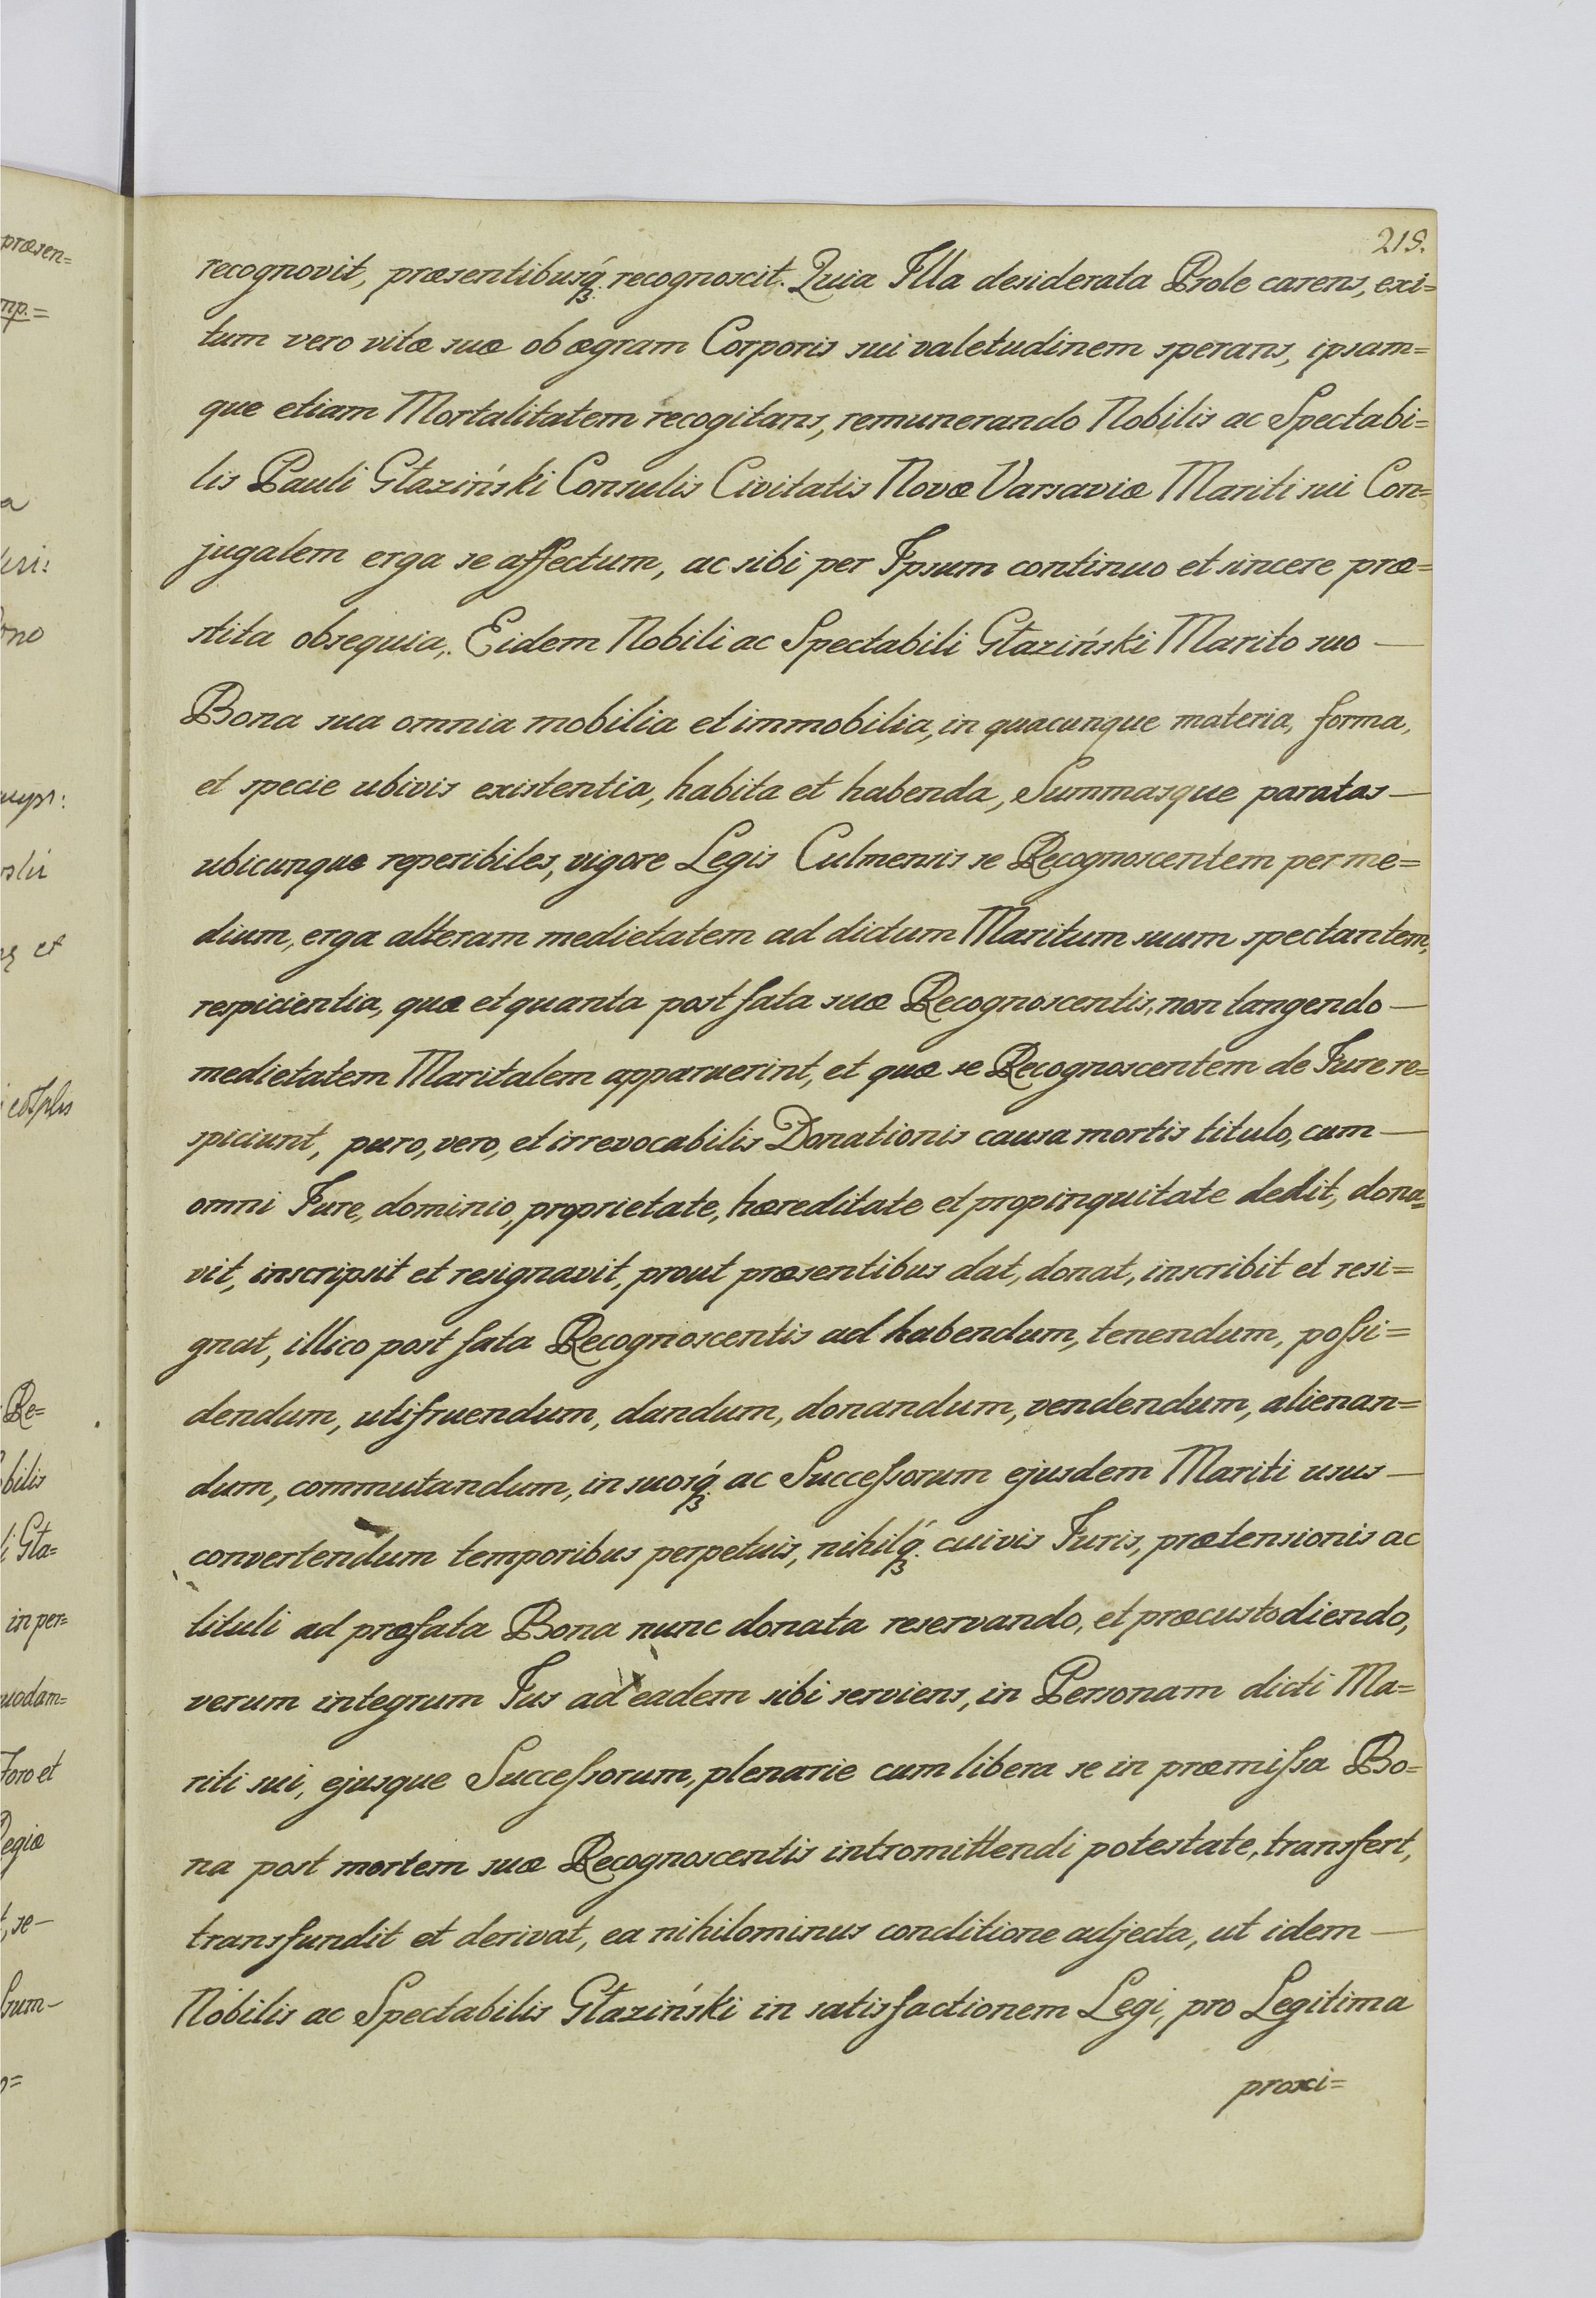 219.
recognovit, præsentibusq́ꝫ recognoscit. Quia Illa desiderata Prole carens, exi=
tum vero vitæ suæ ob ægram Corporis sui valetudinem sperans, ipsam=
que etiam Mortalitatem recogitans, remunerando Nobilis ac Spectabi=
lis Pauli Głaziński Consulis Civitatis Novæ Varsaviæ Mariti sui Con=
jugalem erga se affectum, ac sibi per Ipsum continuo et sincere præ=
stita obsequia, Eidem Nobili ac Spectabili Głaziński Marito suo —
Bona sua omnia mobilia et immobilia, in quacunque materia, forma,
et specie ubivis existentia, habita et habenda, Summasque paratas —
ubicunque reperibiles, vigore Legis Culmensis se Recognoscentem per me=
dium, erga alteram medietatem ad dictum Maritum suum spectantem,
respicientia, quæ et quanta post fata suæ Recognoscentis, non tangendo —
medietatem Maritalem apparuerint, et quæ se Recognoscentem de Jure re=
spiciunt, puro, vero, et irrevocabilis Donationis causa mortis titulo, cum —
omni Jure, dominio, proprietate, hæreditate et propinquitate dedit, dona=
vit, inscripsit et resignavit, prout præsentibus dat, donat, inscribit et resi=
gnat, illico post fata Recognoscentis ad habendum, tenendum, poſsi=
dendum, utifruendum, dandum, donandum, vendendum, alienan=
dum, commutandum, in suosq́ꝫ ac Succeſsorum ejusdem Mariti usus —
convertendum temporibus perpetuis, nihilq́ꝫ cuivis Juris, prætensionis ac
tituli ad præfata Bona nunc donata reservando, et præcustodiendo,
verum integrum Jus ad eadem sibi serviens, in Personam dicti Ma=
riti sui, ejusque Succeſsorum, plenarie cum libera se in præmiſsa Bo=
na post mortem suæ Recognoscentis intromittendi potestate, transfert,
transfundit et derivat, ea nihilominus conditione adjecta, ut idem —
Nobilis ac Spectabilis Głaziński in satisfactionem Legi, pro Legitima
proxi=
præsen=
mp.=
a
et
Re=
bilis
i Gła=
in per=
uodam=
Foro et
Regiæ
t, se —